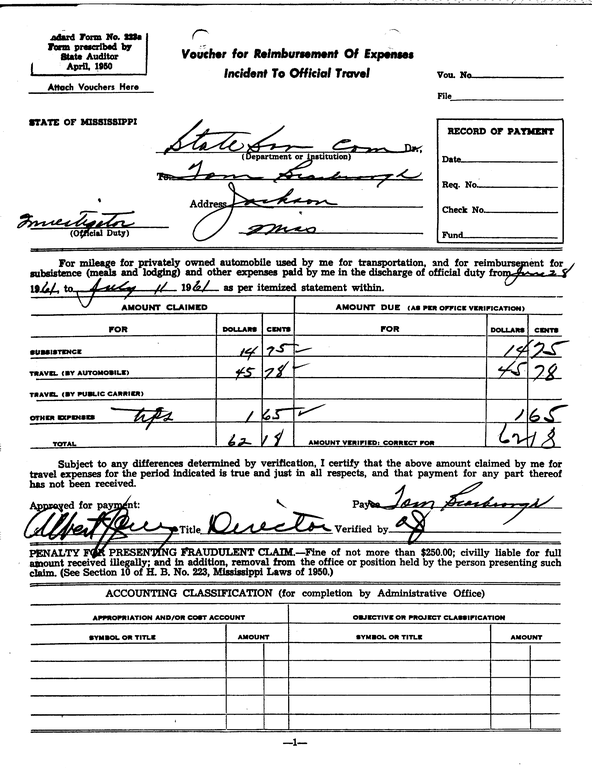 Standard Form No. 223a
Form prescribed by
State Auditor
April, 1950
Attach Vouchers Here
Voucher for Reimbursement Of Expenses
Incident To Official Travel
Vou. No.
File
STATE OF MISSISSIPPI
State Sov Com Dr.,
(Department or Institution)
To: Tom Scarbrough
Address Jackson
Miss
Investigator
(Official Duty)
RECORD OF PAYMENT
Date
Req. No.
Check No.
Fund
For mileage for privately owned automobile used by me for transportation, and for reimbursement for
subsistence (meals and lodging) and other expenses paid by me in the discharge of official duty from June 28
1961, to July 11 1961 as per itemized statement within.
AMOUNT CLAIMED AMOUNT DUE (AS PER OFFICE VERIFICATION)
FOR DOLLARS CENTS FOR DOLLARS CENTS
SUBSISTENCE 14 75 14 75
TRAVEL (BY AUTOMOBILE) 45 78 45 78
TRAVEL (BY PUBLIC CARRIER)
OTHER EXPENSES tips 1 65 1 65
TOTAL 62 18 AMOUNT VERIFIED: CORRECT FOR 62 18
Subject to any differences determined by verification, I certify that the above amount claimed by me for
travel expenses for the period indicated is true and just in all respects, and that payment for any part thereof
has not been received.
Approved for payment: Payee Tom Scarbrough
Albert Jones Title Director Verified by aj
PENALTY FOR PRESENTING FRAUDULENT CLAIM.—Fine of not more than $250.00; civilly liable for full
amount received illegally; and in addition, removal from the office or position held by the person presenting such
claim. (See Section 10 of H. B. No. 223, Mississippi Laws of 1950.)
ACCOUNTING CLASSIFICATION (for completion by Administrative Office)
APPROPRIATION AND/OR COST ACCOUNT OBJECTIVE OR PROJECT CLASSIFICATION
SYMBOL OR TITLE AMOUNT SYMBOL OR TITLE AMOUNT
—1—